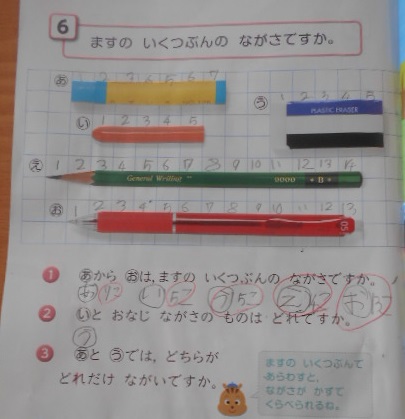 6 ますの いくつぶんの ながさですか。
あ 2 3 4 5 6 7
う 1 2 3 4 5
PLASTIC ERASER
い 1 2 3 4 5
え 1 2 3 4 5 6 7 8 9 10 11 12 13
General Writing 9000 B
お 1 2 3 4 5 6 7 8 9 10 11 12 13
1 あから おは、ますの いくつぶんの ながさですか。
い5こ う5こ
2 いと おなじ ながさの ものは どれですか。
う
3 あと うでは、どちらが
どれだけ ながいですか。
ますの いくつぶんで
あらわすと、
ながさが かずで
くらべられるね。